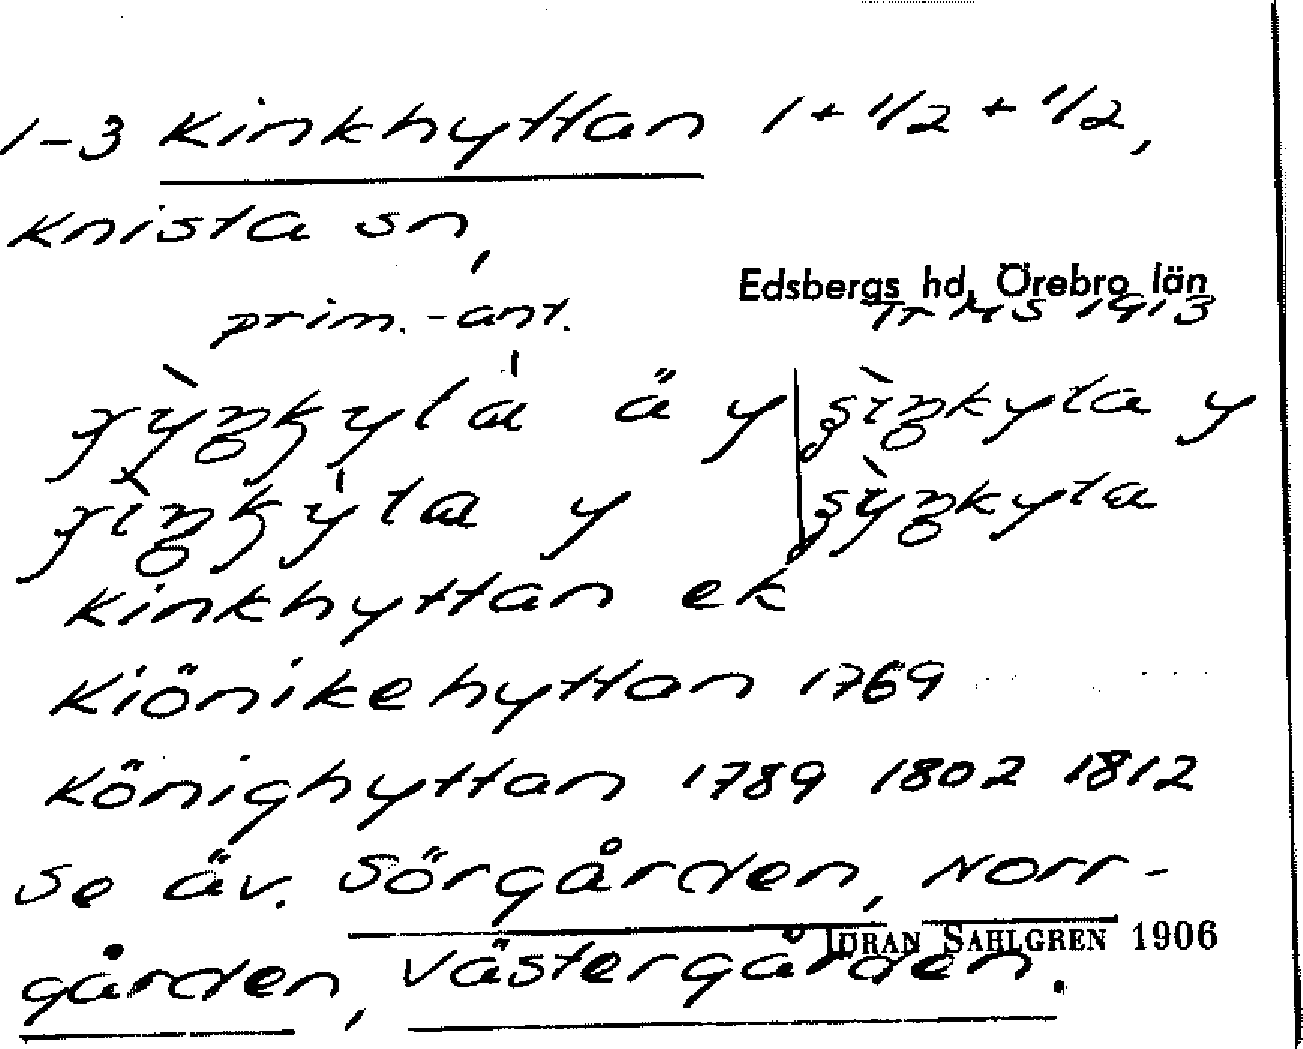 1-3 Kinkhyttan 1 + 1/2 + 1/2,
Knista sn,
Edsbergs hd, Örebro län
prim.-ant. Tr MS 1913
ä y
y
y
Kinkhyttan ek
Kiönikehyttan 1769
Könighyttan 1789 1802 1812
Se äv. Sörgården, Norr-
gården, Västergården.
JÖRAN SAHLGREN 1906